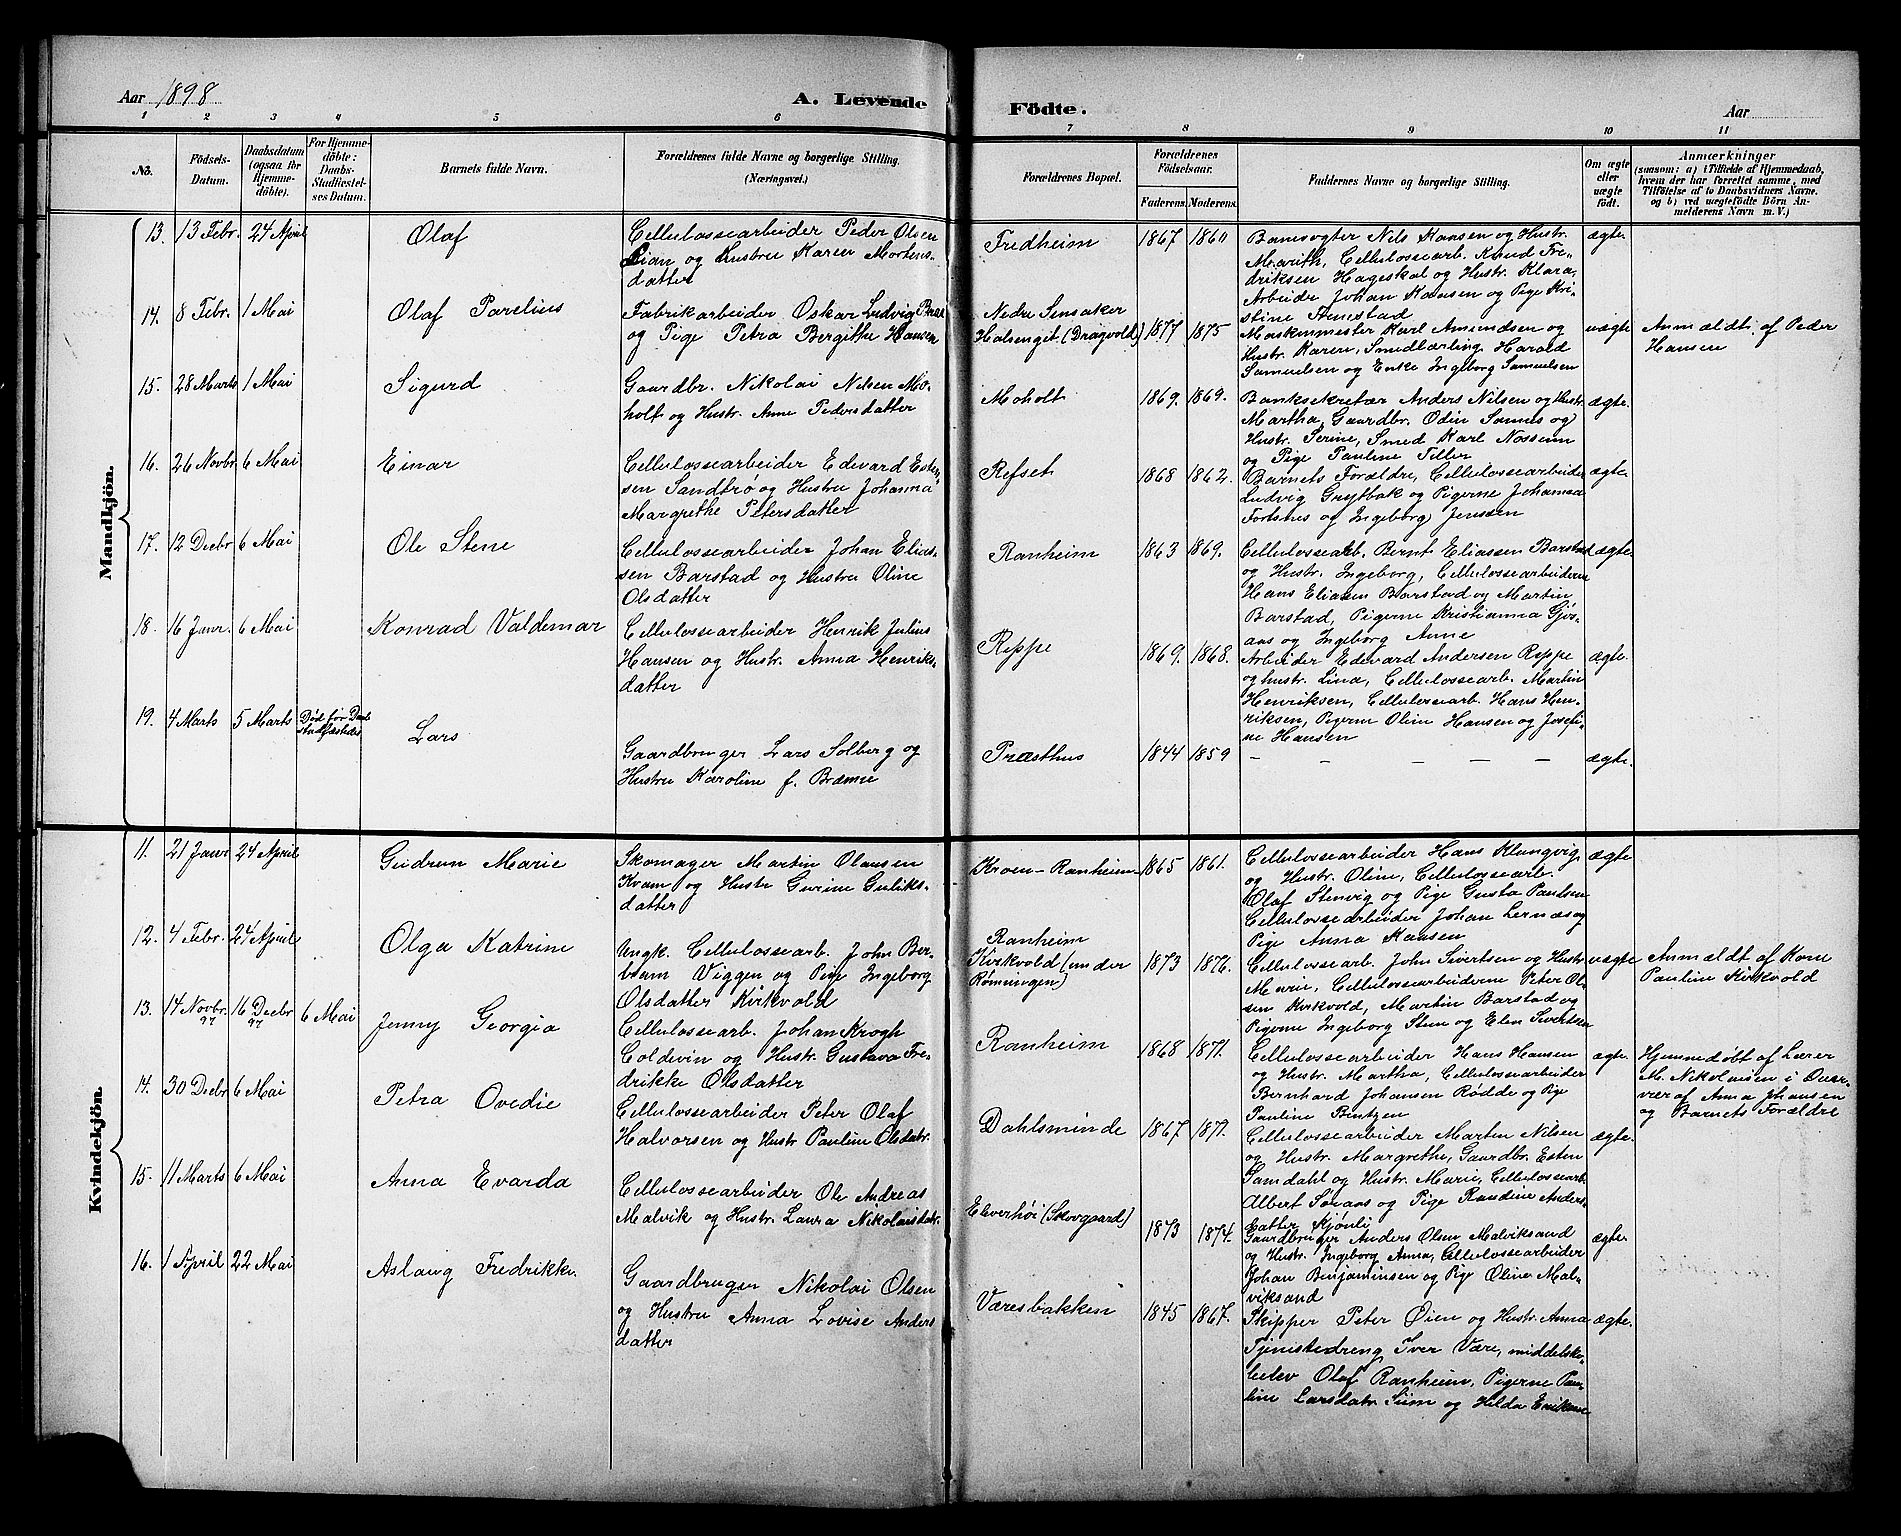 Aar 1898
A. Levende Födte.
Aar
1 2 3 4 5 6 7 8 9 10 11
No.
Födsels-
Datum.
Daabsdatum
(ogsaa for
Hjemme-
döbte).
For Hjemme-
döbte:
Daabs-
Stadfæstel-
ses Datum.
Barnets fulde Navn.
Forældrenes fulde Navne og borgerlige Stilling.
(Næringsvei.)
Forældrenes Bopæl.
Forældrenes
Födselsaar.
Faderens. Moderens.
Faddernes Navne og borgerlige Stilling.
Om ægte
eller
uægte
födt.
Anmærkninger
(saasom: a) i Tilfælde af Hjemmedaab,
hvem der har forrettet samme, med
Tilföielse af to Daabsvidners Navne.
og b) ved uægtefödte Börn An-
melderens Navn m. V.)
Mandkjön.
13. 13 Febr. 24 April
Olaf
Cellulossearbeider Peder Olsen
Lian og Hustru Karen Mortens-
datter
Fredheim
1867 1860
Banevogter Nils Hansen og Hustr.
Marith, Cellulossearb. Knud Fre-
driksen Hageskal og Hustr. Klara,
Arbeider Johan Hansen og Pige Kri-
stine Arnestad
ægte
14. 8 Febr. 1 Mai
Olaf Parelius
Fabrikarbeider Oskar Ludvig
og Pige Petra Bergithe Hansen
Nedre Sensaker
Halsenget (Dragvold)
1877 1875
Maskinmester Karl Amundsen og
Hustr. Karen, Smedlærling Harald
Samuelsen og Enke Ingeborg Samuelsen
uægte
Anmældt af Peder
Hansen
15. 28 Marts 1 Mai
Sigurd
Gaardbr. Nikolai Nilsen Mo-
holt og Hustr. Anne Pedersdatter
Moholt
1869. 1869.
Banksekretær Anders Nilsen og Hustr.
Martha, Gaardbr. Odin Somnes og
Hustr. Serine, Smed Karl Nossum
og Pige Pauline Tiller
ægte.
16. 26 Novbr. 6 Mai
Einar
Cellulossearbeider Edevard Esten-
sen Sandbrø og Hustru Johanna
Margrethe Petersdatter
Refset
1868 1862.
Barnets Forældre, Cellulossearbeider
Ludvig Grytbak og Pigerne Johanna
Fortsnes og Ingeborg Jenssen
ægte
17. 12 Decbr 6 Mai
Ole Stene
Cellulossearbeider Johan Elias-
sen Barstad og Hustru Oline
Olsdatter
Ranheim
1863 1869.
Cellulossearb. Bernt Eliassen Barstad
og Hustr. Ingeborg, Cellulossearbeiderne
Hans Eliasen Barstad og Martin
Barstad, Pigerne Kristianna Gjös-
aas og Ingeborg Anne
ægte.
18. 16 Janr. 6 Mai
Konrad Valdemar
Cellulossearbeider Henrik Julius
Hansen og Hustr. Anna Henriks-
datter
Reppe
1869. 1868.
Arbeider Edevard Andersen Reppe
og hustr. Lina, Cellulossearb. Martin
Henriksen, Cellulossearb. Hans Hen-
riksen, Pigerne Oline Hansen og Josefi-
ne Hansen
ægte.
19. 4 Marts 5 Marts
Död för Daab
stadfæstedes
Lars
Gaardbruger Lars Solberg og
Hustru Karoline f. Bræmne
Præsthus
1844 1859
— — — — —
ægte.
Kvindekjön.
11. 21 Janr 24 April
Gudrun Marie
Skomager Martin Olausen
Kvam og Hustr Gurine Guliks-
datter
Kroen-Ranheim
1865 1861.
Cellulossearbeider Hans Klungvig
og Hustr. Oline, Cellulossearb.
Olaf Stenvig og Pige Gusta Paulsen
Cellulossearbeider Johan Lernæs og
Pige Anna Hansen
ægte
12. 4 Febr. 24 April
Olga Katrine
Ungk. Cellulossearb. John Ber-
Viggen og Pige Ingeborg
Olsdatter Kirkvold
Ranheim
Kirkvold (under
Rønningen)
1873 1876.
Cellulossearb. John Sivertsen og Hustr
Marie, Cellulossearbeiderne Peter Ol-
sen Kirkvold, Martin Barstad og
Pigerne Ingeborg Stene og Elen Sivertsen
uægte
Anmældt af Kone
Pauline Kirkvold
13. 14 Novbr. 97 16 Decbr 97 6 Mai
Jenny Georgia
Cellulossearb. Johan Krogh
Coldevin og Hustr. Gustava Fre-
drikke Olsdatter
Ranheim
1868 1871.
Cellulossearbeider Hans Hansen
og Hustr. Martha, Cellulossearbeider
Bernhard Johansen Rødde og Pige
Pauline Bentzen
ægte.
Hjemmedøbt af Lærer
M. Nikolaisen i Over-
vær af Anna Johansen
og Barnets Forældre
14. 30 Decbr 6 Mai
Petra Ovedie
Cellulossearbeider Peter Olaf
Halvorsen og Hustr Pauline Olsdatr.
Dahlsminde
1867 1871.
Cellulossearbeider Morten Nilsen
og Hustr. Margrethe, Gaardbr. Esten
Samdahl og Hustr. Marie, Cellulossearb.
Albert Søraas og Pige Randine Anders-
datter Kjønli
ægte.
15. 11 Marts 6 Mai
Anna Evarda
Cellulossearbeider Ole Andreas
Malvik og Hustr. Laura Nikolaisdatr.
Elverhøi (Skovgaard)
1873 1874.
Gaardbruger Anders Olsen Malviksand
og Hustr. Ingeborg Anna, Cellulossearbeider
Johan Benjaminsen og Pige Oline Mal-
viksand
ægte.
16. 1 April 22 Mai
Aslaug Fredrikke.
Gaardbruger Nikolai Olsen
og Hustru Anna Lovise Anders
datter
Væresbakken
1845 1867.
Skipper Peter Øien og Hustr. Anna
Tjenestedreng Iver Være, middelsko-
leelev Olaf Ranheim, Pigerne Pau-
line Larsdatr. Siim og Hilda Eriksen
ægte.